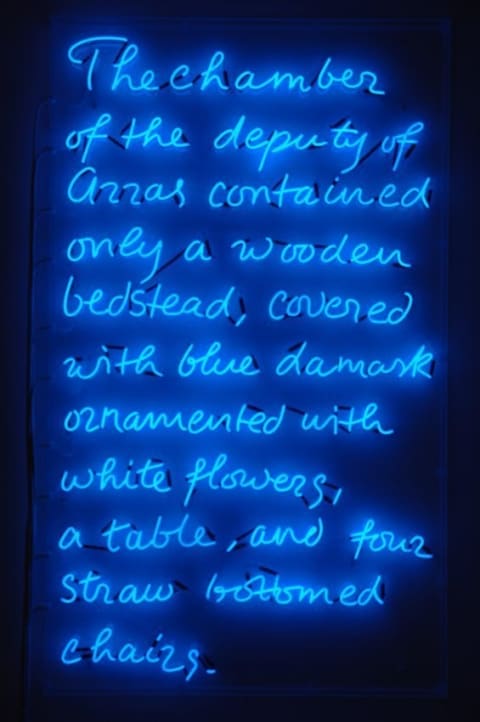 The chamber
of the deputy of
Arras contained
only a wooden
bedstead, covered
with blue damask
ornamented with
white flowers,
a table, and four
straw bottomed
chairs.